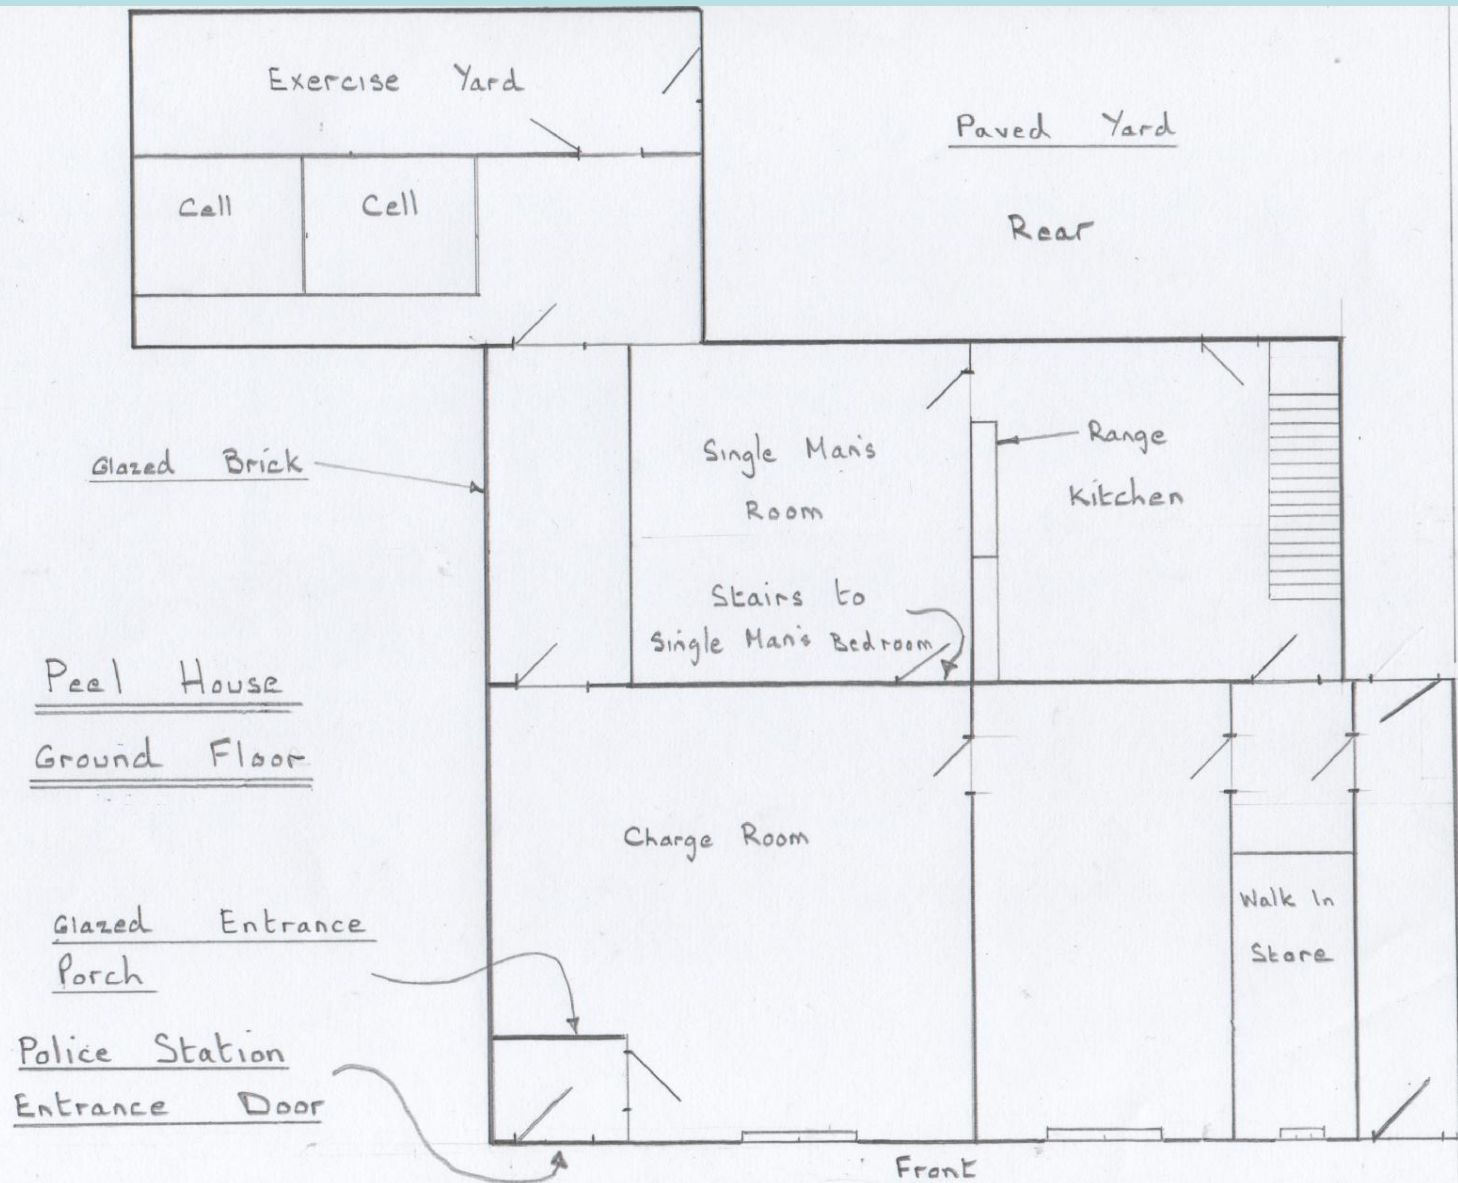 Exercise Yard
Paved Yard
Rear
Cell
Cell
Glazed Brick
Single Man's
Room
Range
Kitchen
Stairs to
Single Man's Bedroom
Peel House
Ground Floor
Charge Room
Walk In
Store
Glazed Entrance
Porch
Police Station
Entrance Door
Front